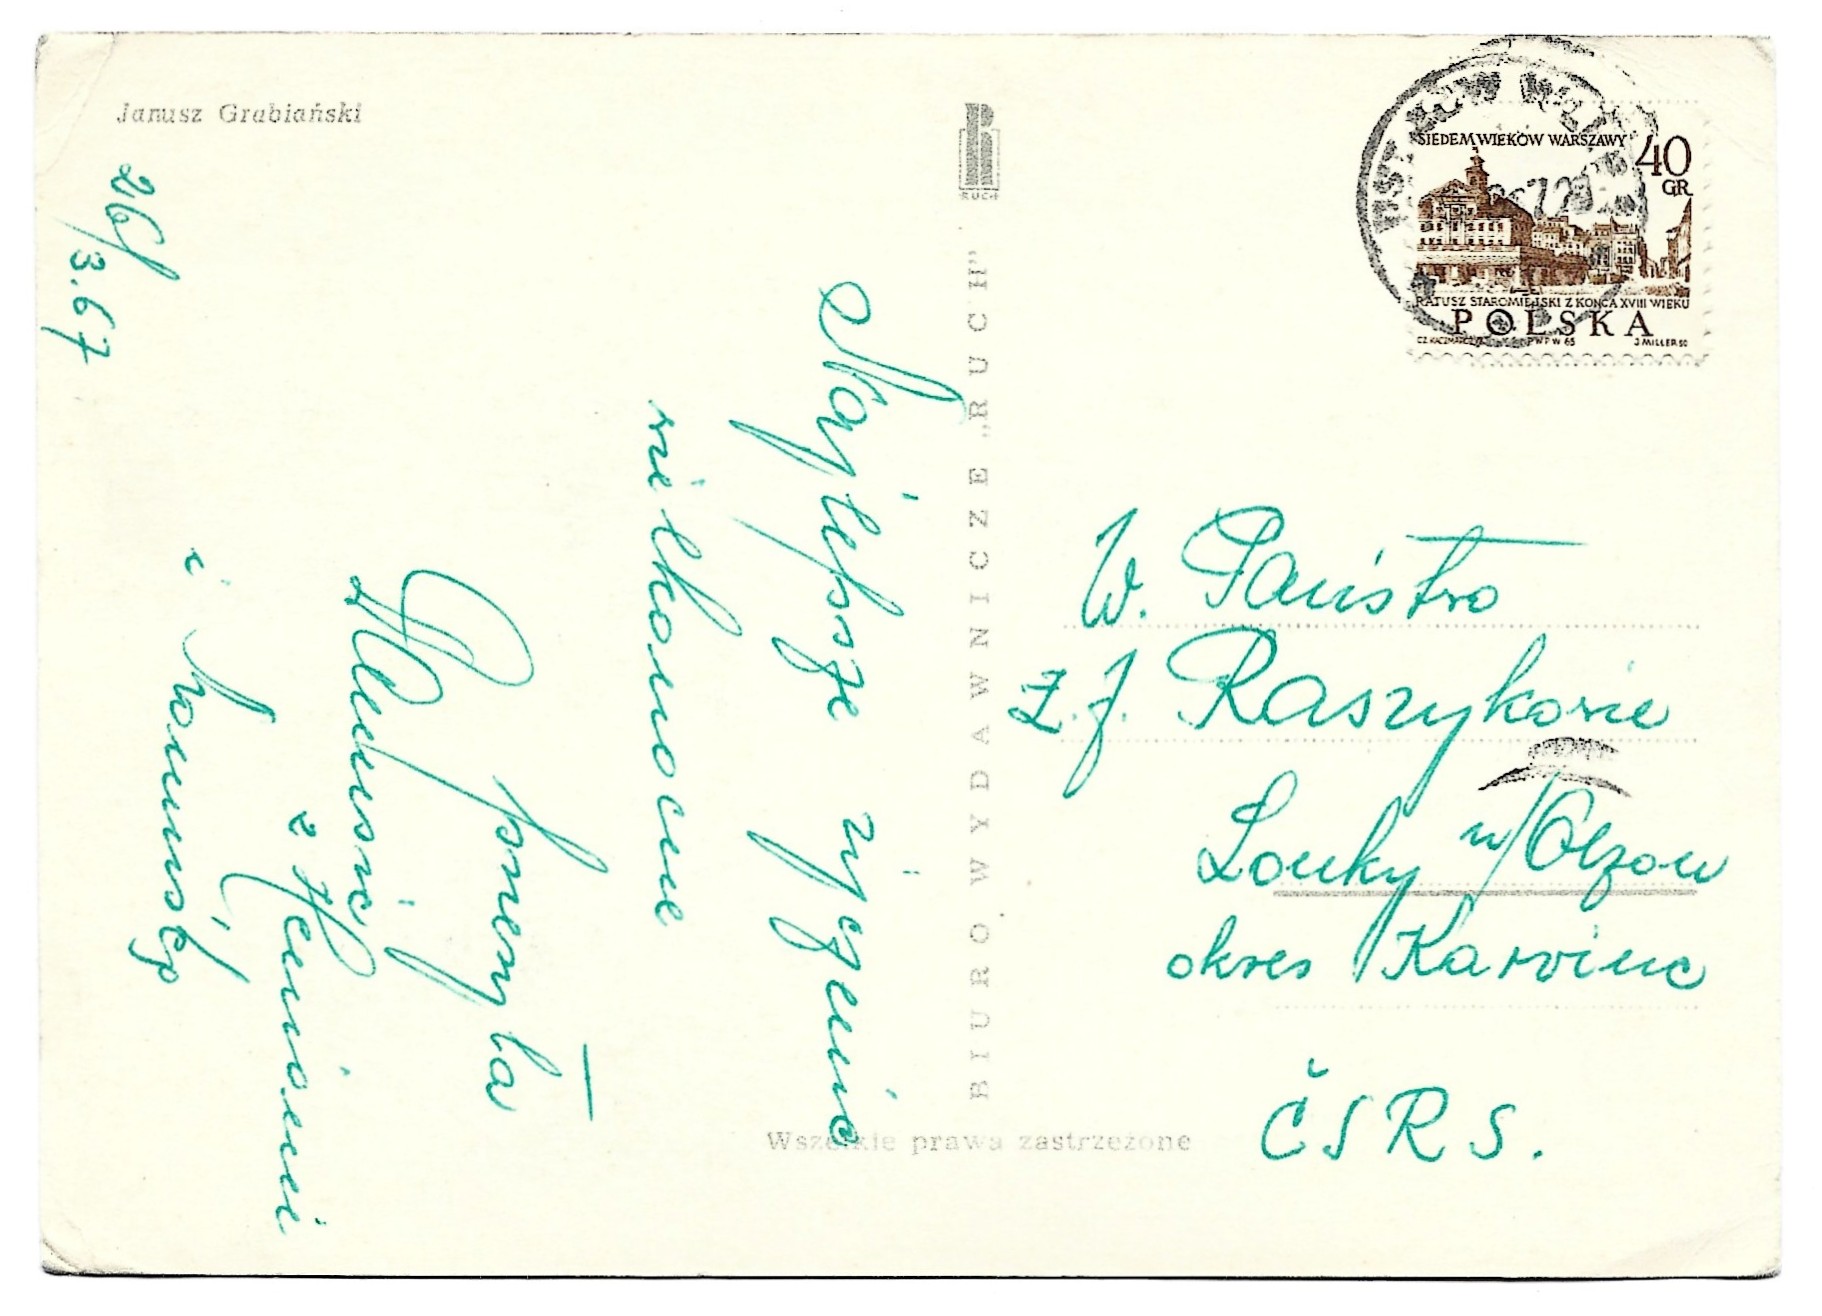 Janusz Grabiański
26/3.67
Najlepsze życzenia
wielkanocne
przesyła
i
RUCH
BIURO WYDAWNICZE „RUCH”
Wszelkie prawa zastrzeżone
SIEDEM WIEKÓW WARSZAWY
40
GR.
RATUSZ STAROMIEJSKI Z KOŃCA XVIII WIEKU
POLSKA
PWPW 65
J. MILLER SC
W. Państwo
Z. J. Raszykowie
Louky n/Olzou
okres Karvina
ČSRS.